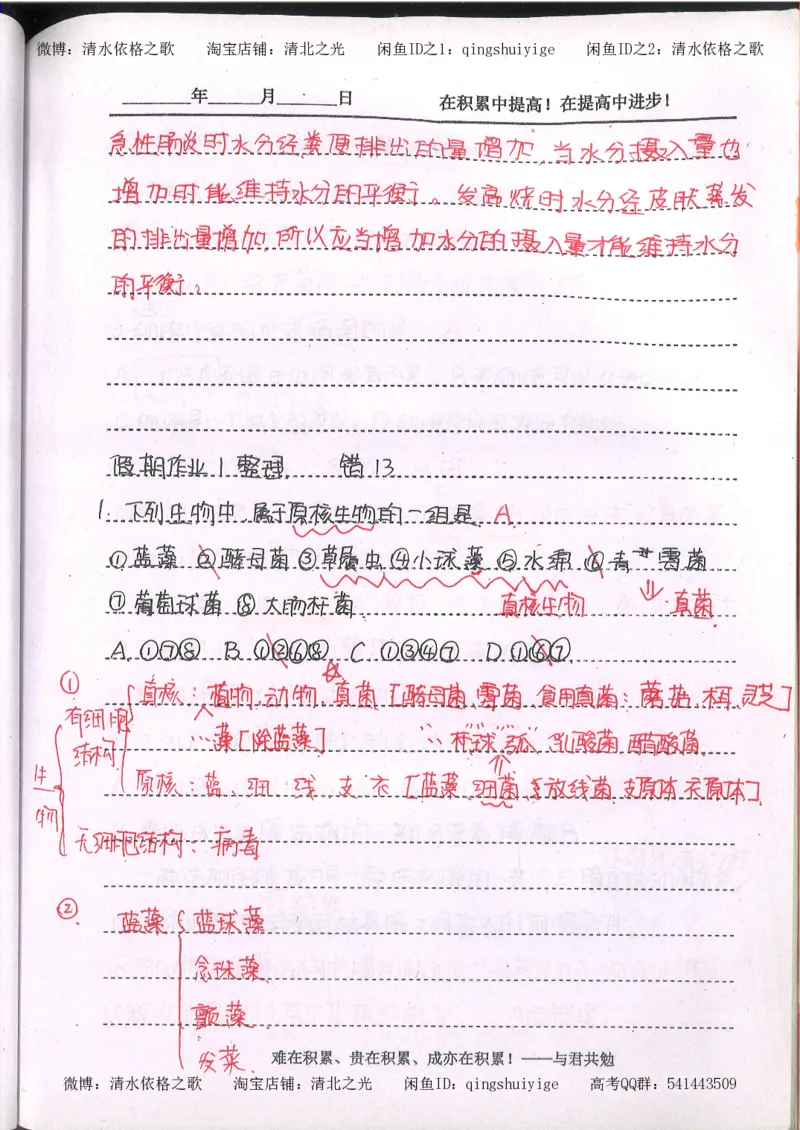 微博：清水依格之歌 淘宝店铺：清北之光 闲鱼ID之1：qingshuiyige 闲鱼ID之2：清水依格之歌
____年____月____日 在积累中提高！在提高中进步！
急性肠炎时水分经粪便排出的量增加，当水分摄入量也
增加时能维持水分的平衡。发高烧时水分经皮肤蒸发
的排出量增加，所以应当增加水分的摄入量才能维持水分
的平衡。
假期作业1整理 错13
1.下列生物中，属于原核生物的一组是 A
①蓝藻 ②酵母菌 ③草履虫 ④小球藻 ⑤水绵 ⑥青霉菌
⑦葡萄球菌 ⑧大肠杆菌 真核生物 真菌
A.①⑦⑧ B.①②⑥⑧ C ①③④⑦ D ①⑥⑦
① 真核：植物，动物，真菌[酵母菌，霉菌，食用真菌：蘑菇，木耳，灵芝]
有细胞结构
藻[除蓝藻] "杆""球""弧" 乳酸菌 醋酸菌
原核：蓝、细 线 支 衣 [蓝藻，细菌，放线菌，支原体，衣原体]
生物
无细胞结构：病毒
② 蓝藻 蓝球藻
念珠藻
颤藻
发菜
难在积累、贵在积累、成亦在积累！——与君共勉
微博：清水依格之歌 淘宝店铺：清北之光 闲鱼ID：qingshuiyige 高考QQ群：541443509